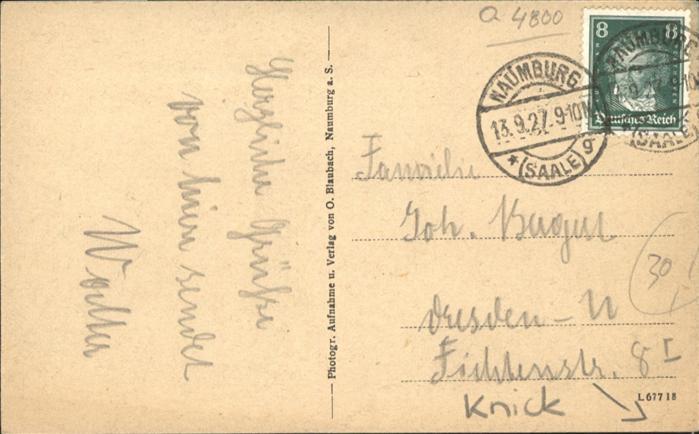 Q 4800
8 8
Deutsches Reich
NAUMBURG
13.9.27. 9-10V
* (SAALE) g
NAUMBURG
(SAALE)
Herzliche Grüße
von hier sendet
Walter
Photogr. Aufnahme u. Verlag von O. Blaubach, Naumburg a. S.
Familie
Joh.
Dresden - N
Fichtenstr. 8 I
30
Knick
L 677 18